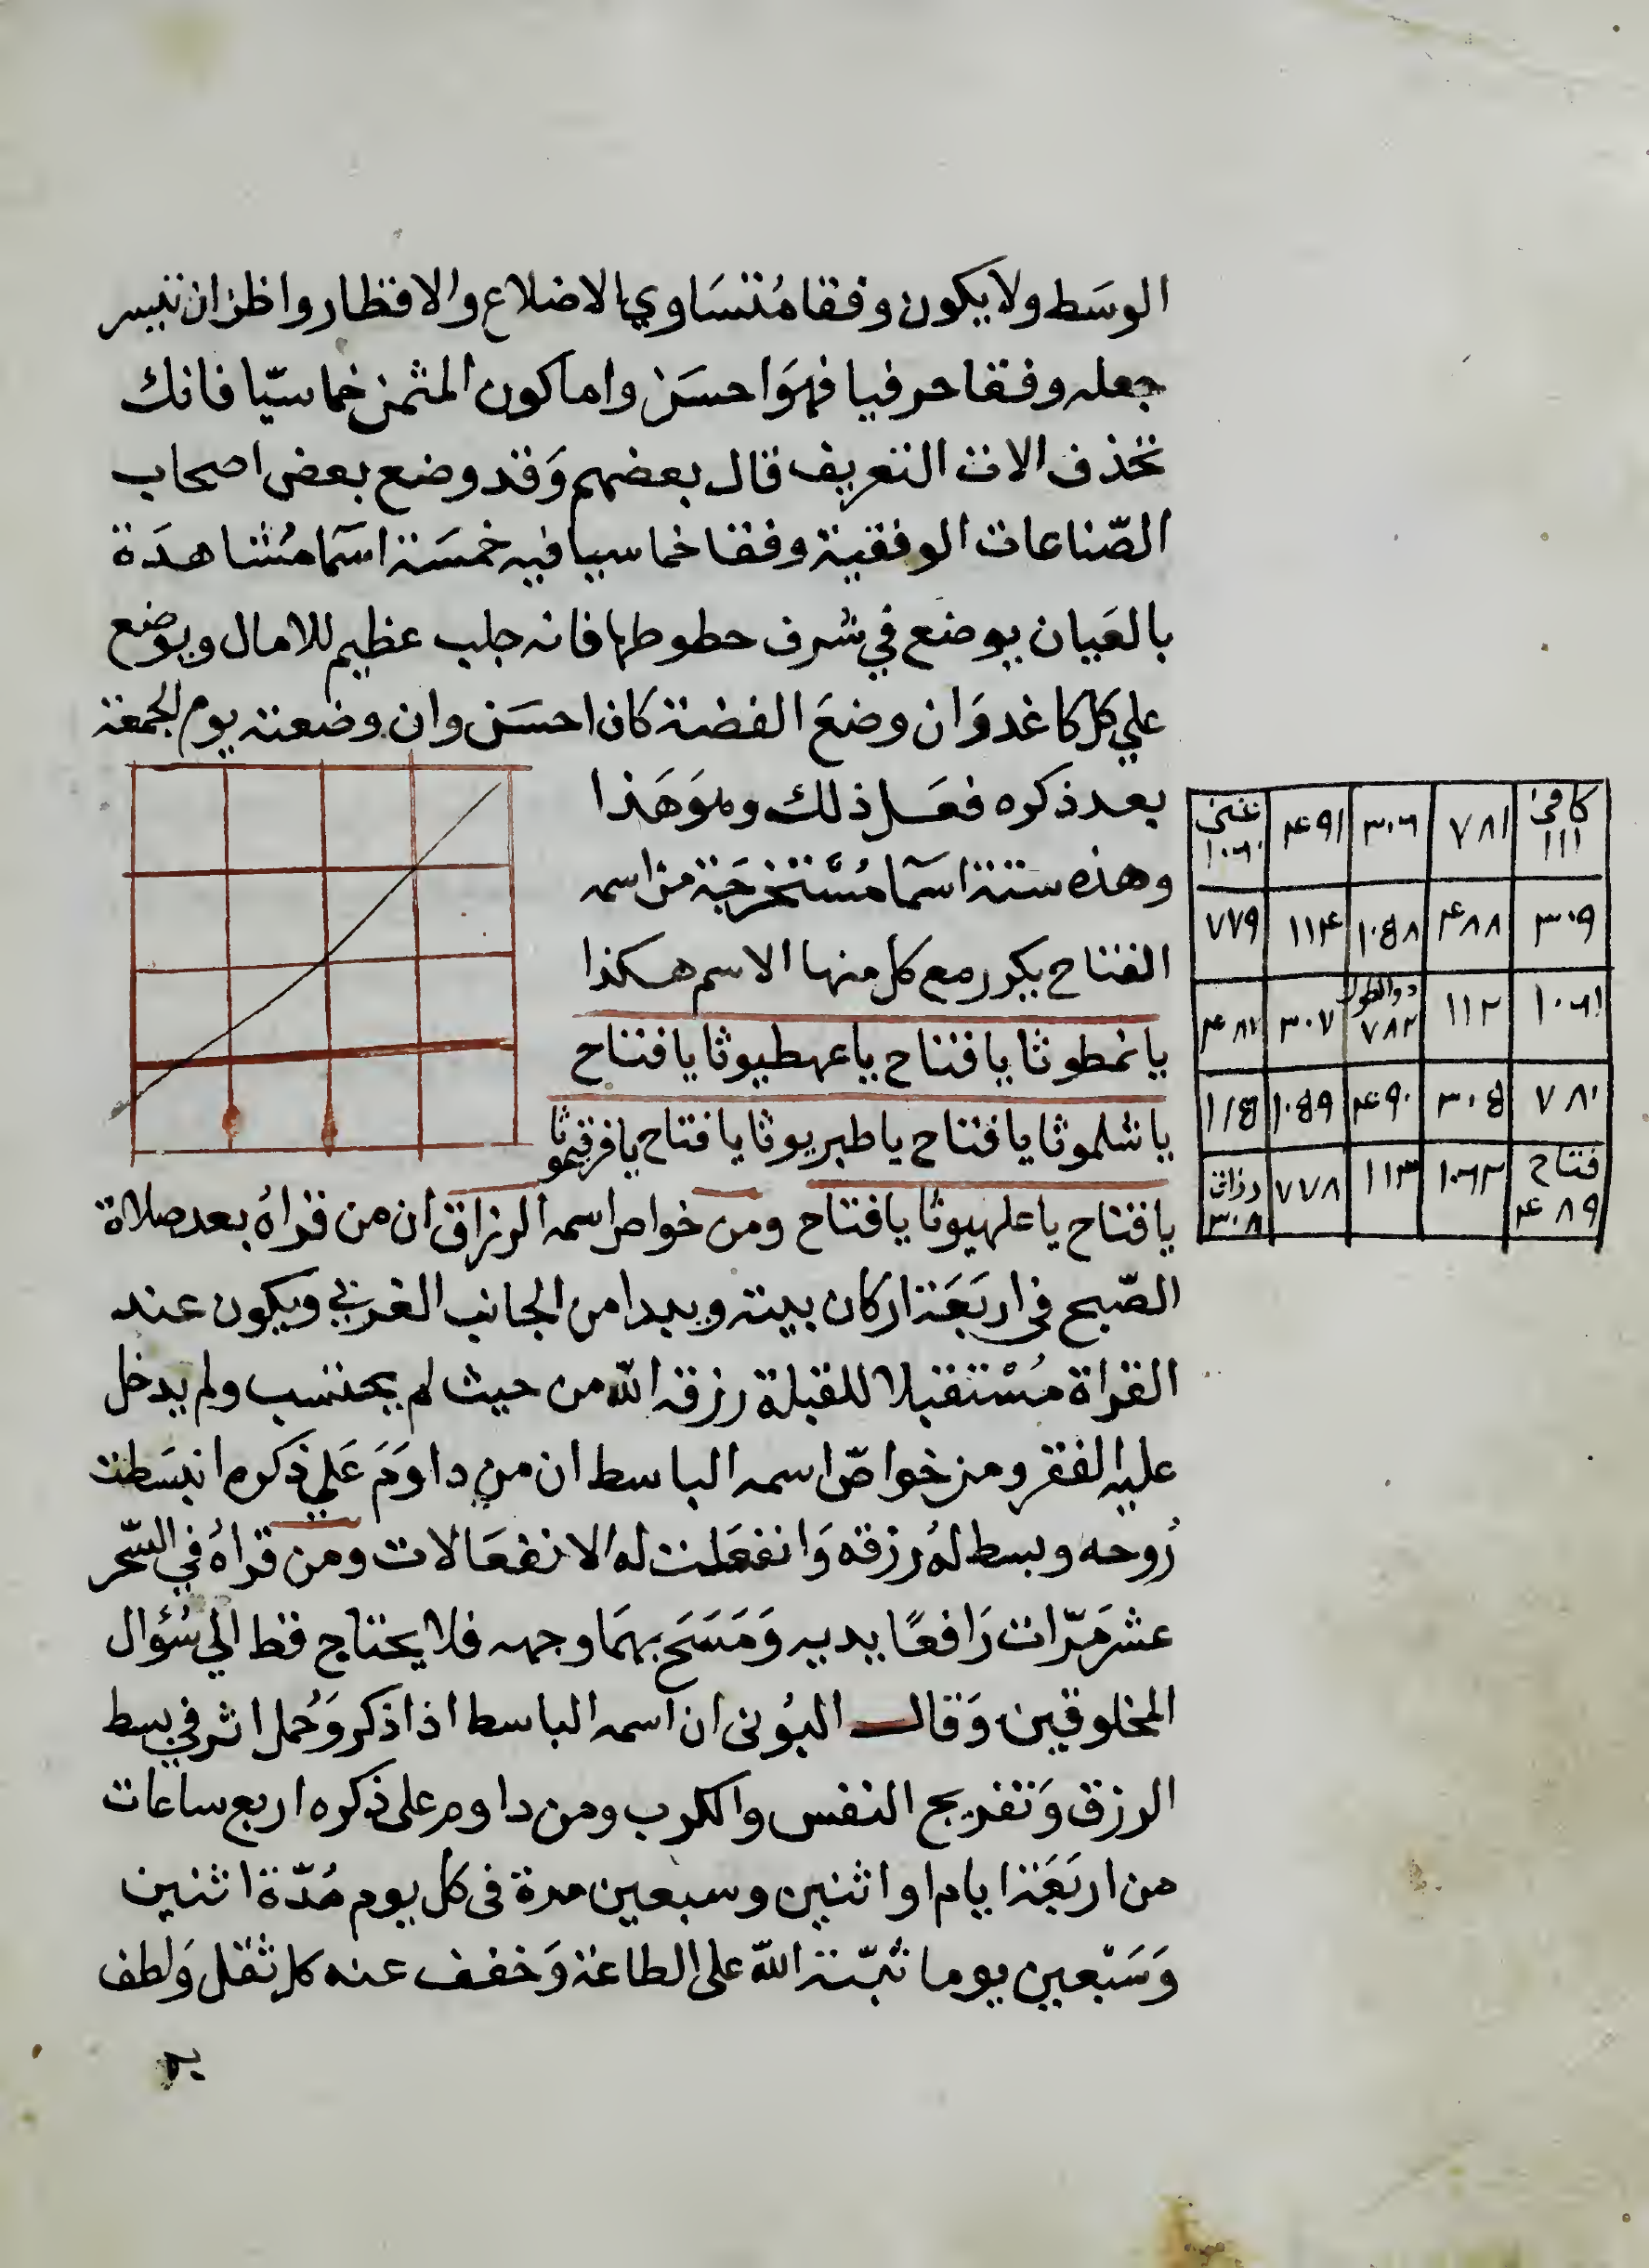 الوسَط ولا يكون وفقا مُتسَاوي الاضلاع والاقطار واظن ان تيسر
جعله وفقا حرفيا فهوَ احسَن واما كون المثمن خماسيّا فانك
تحذف الات التعريف قال بعضهم وَقد وضع بعض اصحاب
الصّناعات الوفقية وفقا خماسيا فيه خمسَة اسمآ مُشاهدَة
بالعَيان يوضع في شرف حطوطها فانه جلب عظيم للامال ويوضع
علي كل كاغد وَان وضعَ الفضة كان احسَن وان وضعته يوم الجمعة
بعد ذكره فعَل ذلك وهوَ هَذا
وهذه ستة اسمآ مُسْتخرجَة من اسمه
الفتاح يكرر مع كل منها الاسم هكذا
يا نمطوثا يا فتاح يا عهطيوثا يا فتاح
يا شلموثا يا فتاح يا طبريوثا يا فتاح يا فرقيموثا
يا فتاح يا علهيوثا يا فتاح ومن خواص اسمه الرزاق ان من قراهُ بعد صلاة
الصّبح في اربَعَة اركان بيته ويبدا من الجانب الغربي ويكون عند
القراة مُسْتقبلا للقبلة رزقه الله من حيث لم يحتسب ولم يدخل
عليه الفقر ومن خواصّ اسمه الباسط ان من داوَمَ عَلي ذكره انبسَطت
رُوحه وبسط لهُ رزقه وَانفعَلت له الانفعَالات ومن قراهُ في السّحر
عشر مَرّات رَافعًا يديه وَمَسَح بهمَا وجهه فلا يحتاج قط الي سُؤال
المخلوقين وَقال البُونى ان اسمه الباسط اذا ذكر وَحُمل اثر في بسط
الرزق وَتفريج النفس والكرب ومن داوم على ذكره اربع ساعات
من اربَعَة ايام او اثنين وسبعين مرة فى كل يوم مُدّة اثنين
وَسَبْعين يوما ثبّته الله على الطاعة وَخفف عنه كل ثقل وَلطف
كافى ١١١ ٧٨١ ٣٠٦ ٤٩١ غنى ١٠٦٠
٣٠٩ ٤٨٨ ١٠٥٨ ١١٤ ٧٧٩
١٠٦١ ١١٢ ذوالطول ٧٨٢ ٣٠٧ ٤٨٧
٧٨٠ ٣٠٥ ٤٩٠ ١٠٥٩ ١١٥
فتاح ٤٨٩ ١٠٦٢ ١١٣ ٧٧٨ رزاق ٣٠٨